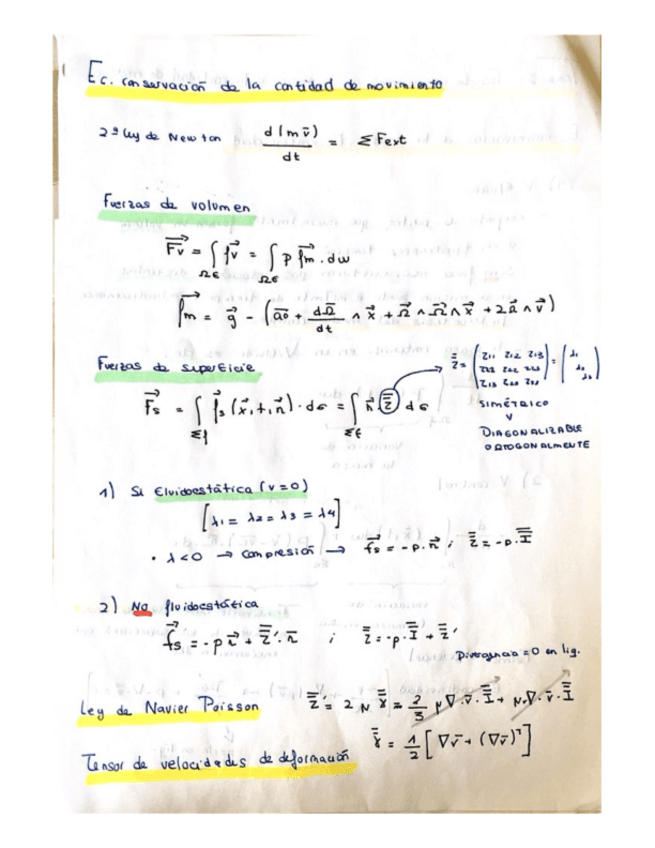 Ec. conservación de la cantidad de movimiento
2ª ley de Newton d(m v̄)/dt = ΣFext
Fuerzas de volumen
F⃗v = ∫Ωt f⃗v = ∫Ωt ρ f⃗m · dω
f⃗m = g⃗ - (a̅o + dΩ̅/dt ∧ x⃗ + Ω̅ ∧ Ω̅ ∧ x⃗ + 2Ω̅ ∧ v⃗)
Fuerzas de superficie
F⃗s = ∫Σt f⃗s (x⃗, t, n⃗) · dσ = ∫Σt n⃗ · Z̿ dσ
SIMÉTRICO
Y
DIAGONALIZABLE
ORTOGONALMENTE
1) Si fluidoestática (v=0)
[λ1 = λ2 = λ3 = λ4]
• λ<0 → compresión → f⃗s = -p · n⃗ ; Z̿ = -p · I̿
2) No fluidoestática
f⃗s = -p n⃗ + Z̿' · n̅ ; Z̿ = -p · I̿ + Z̿'
Divergencia = 0 en liq.
Ley de Navier Poisson Z̿' = 2 μ γ̿ = 2/3 μ ∇ · v̅ · I̿ + μv ∇ · v̅ · I̿
γ̿ = 1/2 [∇v̅ + (∇v̅)ᵀ]
Tensor de velocidades de deformación